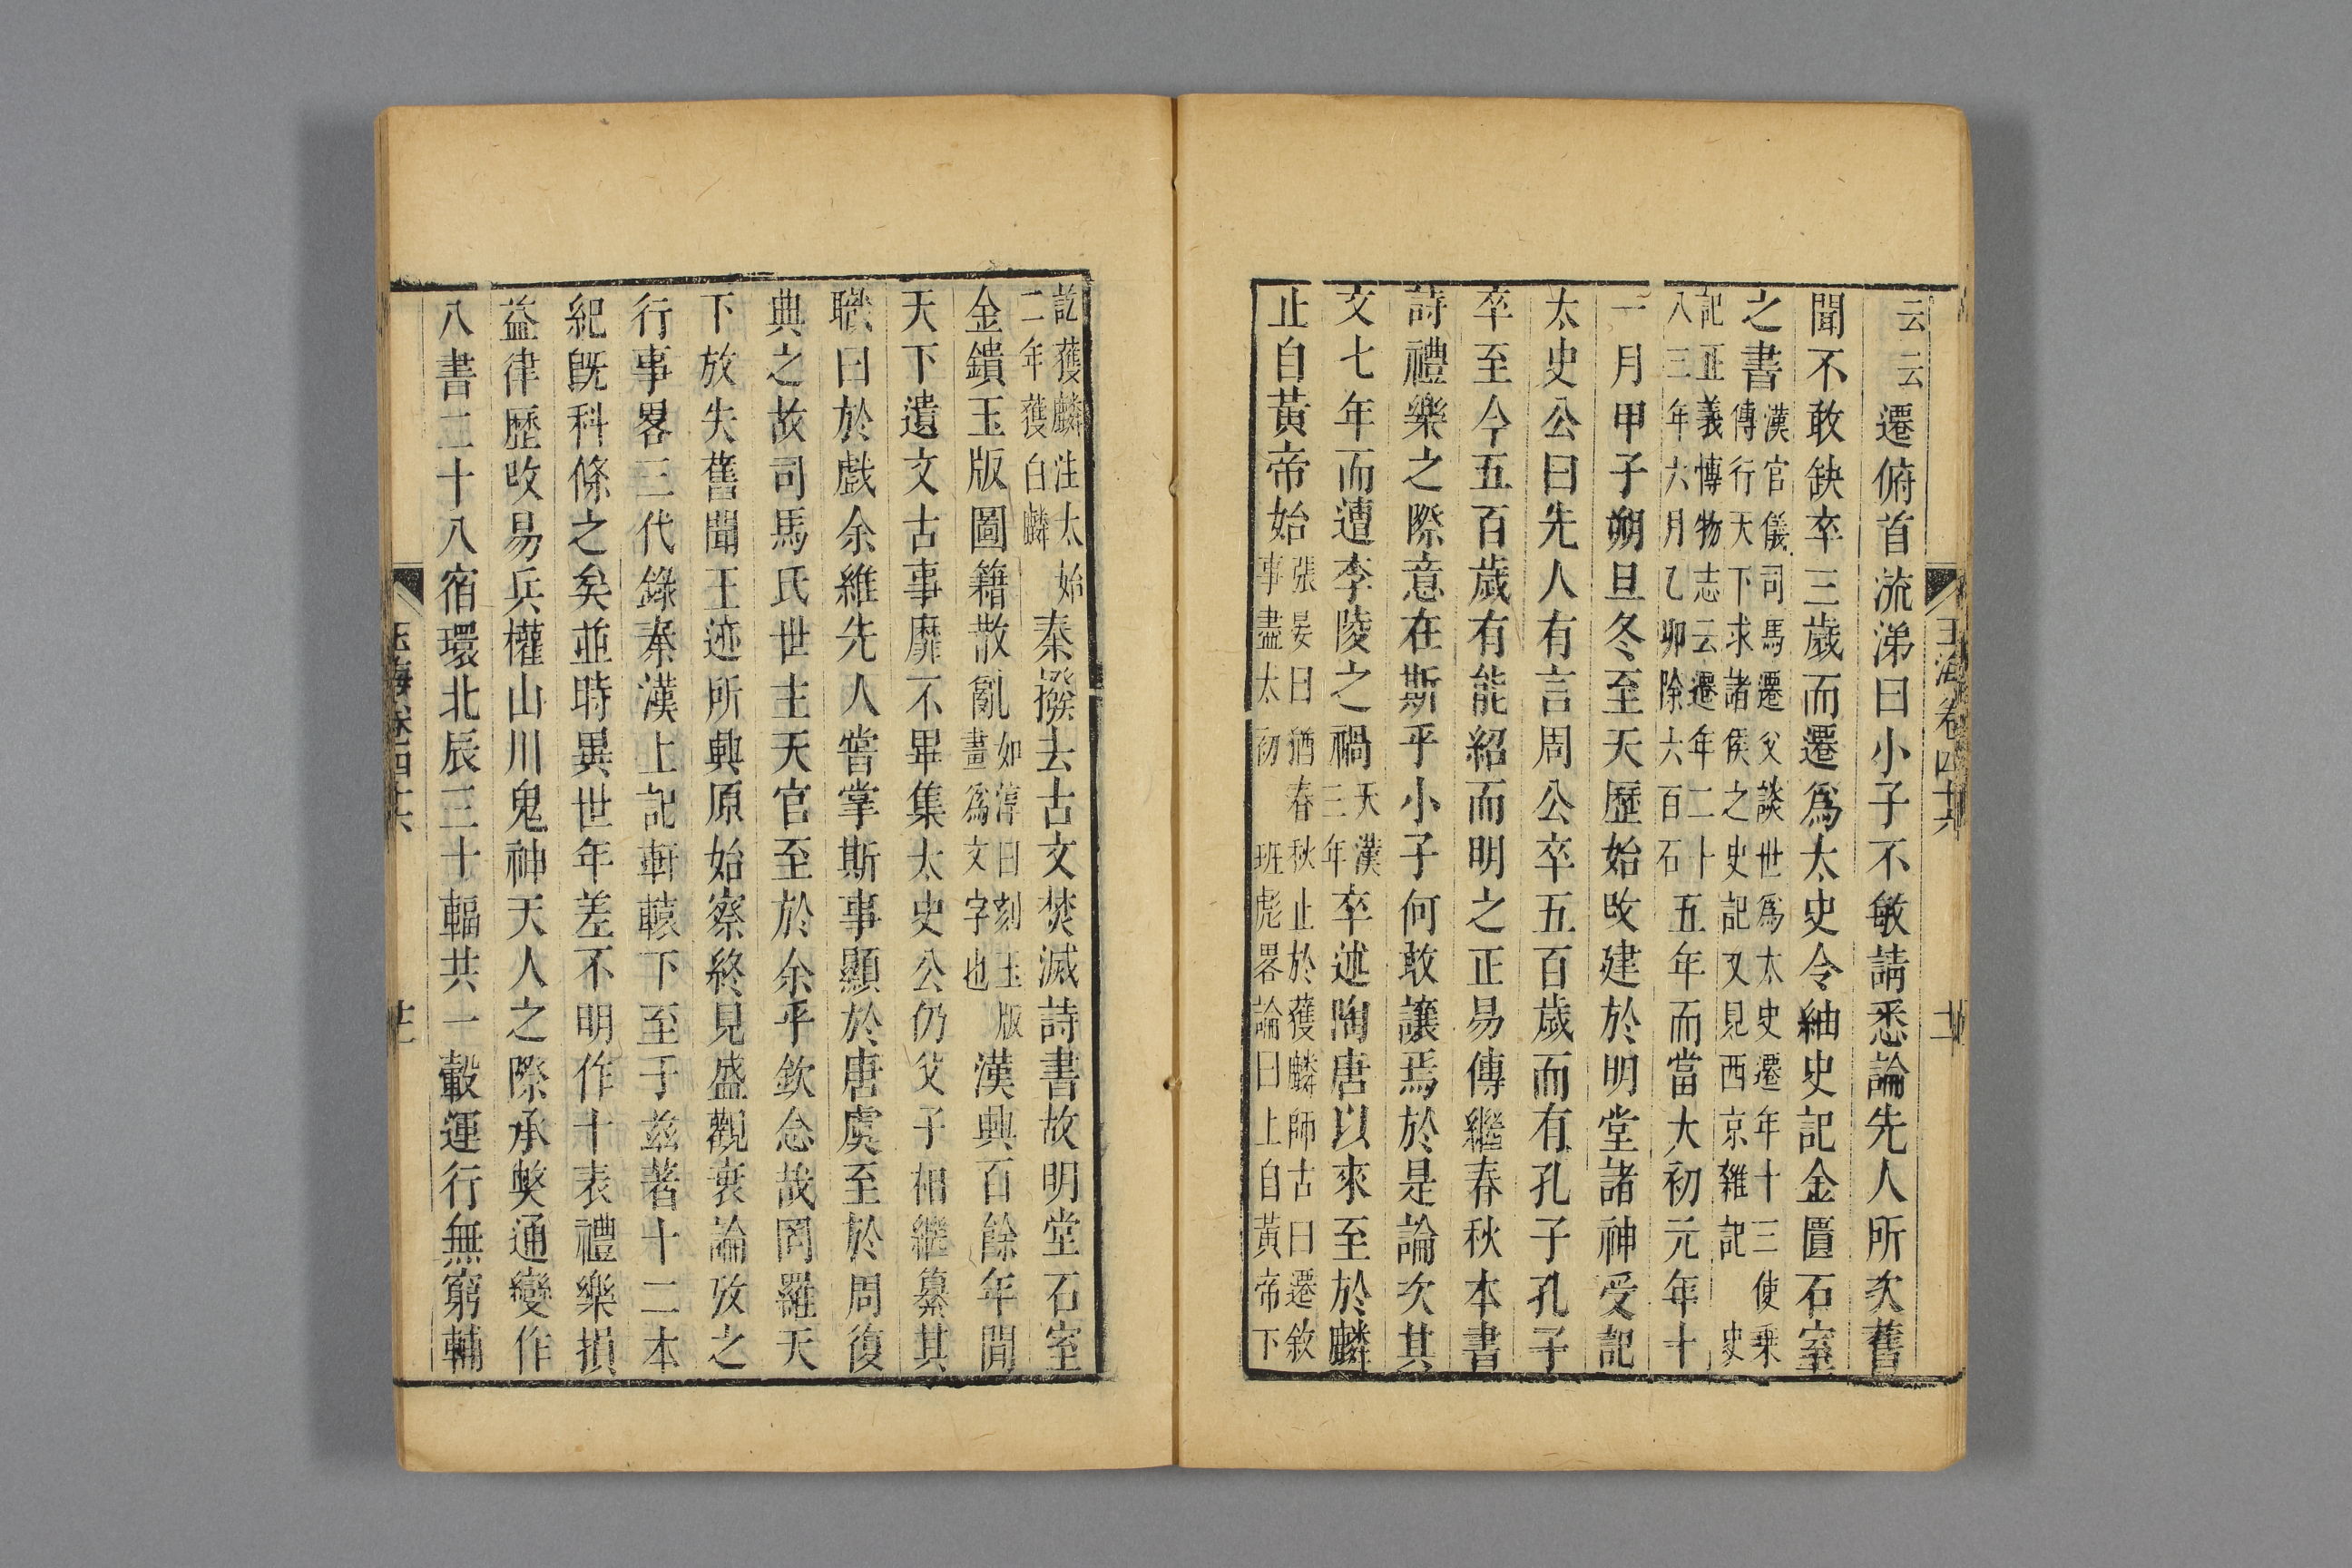 玉海卷四十六
云云遷俯首流涕曰小子不敏請悉論先人所次舊
聞不敢缺卒三歲而遷爲太史令紬史記金匱石室
之書
漢官儀司馬遷父談世爲太史遷年十三使乘
傳行天下求諸侯之史記又見西京雜記　史
記正義博物志云遷年二十
八三年六月乙卯除六百石
五年而當太初元年十
一月甲子朔旦冬至天歷始改建於明堂諸神受記
太史公曰先人有言周公卒五百歲而有孔子孔子
卒至今五百歲有能紹而明之正易傳繼春秋本書
詩禮樂之際意在斯乎小子何敢讓焉於是論次其
文七年而遭李陵之禍
天漢
三年
卒述陶唐以來至於麟
止自黃帝始
張晏曰猶春秋止於獲麟師古曰遷敘
事盡太初　班彪畧論曰上自黃帝下
訖獲麟注太始
二年獲白麟
秦撥去古文焚滅詩書故明堂石室
金鐀玉版圖籍散亂
如淳曰刻玉版
畫爲文字也
漢興百餘年間
天下遺文古事靡不畢集太史公仍父子相繼纂其
職曰於戲余維先人嘗掌斯事顯於唐虞至於周復
典之故司馬氏世主天官至於余乎欽念哉罔羅天
下放失舊聞王迹所興原始察終見盛觀衰論攷之
行事畧三代錄秦漢上記軒轅下至于兹著十二本
紀旣科條之矣並時異世年差不明作十表禮樂損
益律歷改易兵權山川鬼神天人之際承獘通變作
八書二十八宿環北辰三十輻共一轂運行無窮輔
玉海卷四十六